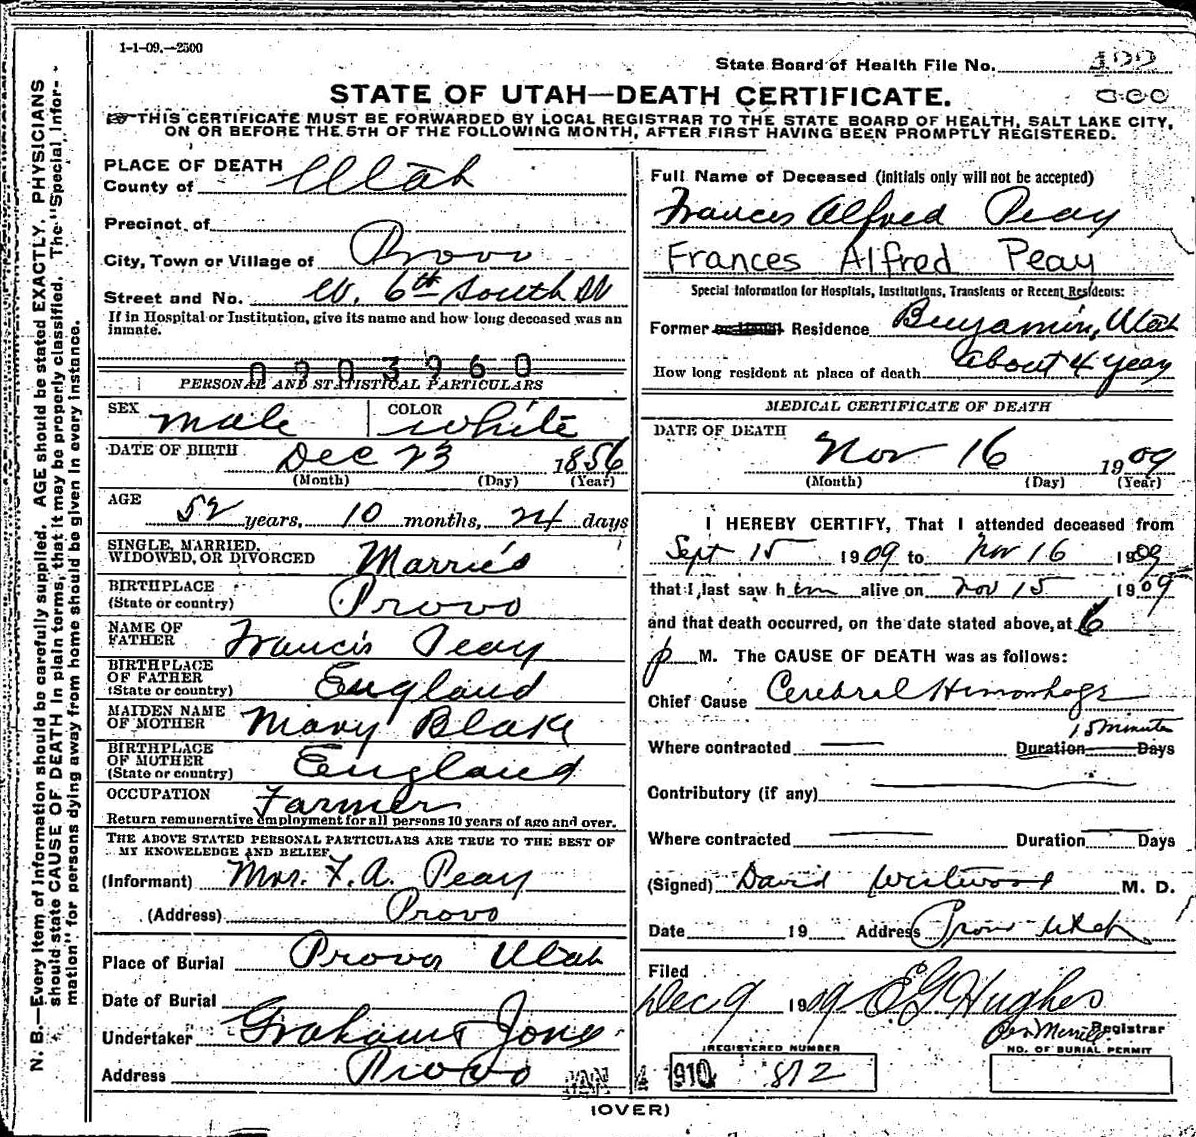 1-1-09.—2500
State Board of Health File No.
STATE OF UTAH—DEATH CERTIFICATE.
THIS CERTIFICATE MUST BE FORWARDED BY LOCAL REGISTRAR TO THE STATE BOARD OF HEALTH, SALT LAKE CITY,
ON OR BEFORE THE 5TH OF THE FOLLOWING MONTH, AFTER FIRST HAVING BEEN PROMPTLY REGISTERED.
N. B.—Every item of information should be carefully supplied. AGE should be stated EXACTLY. PHYSICIANS
should state CAUSE OF DEATH in plain terms, that it may be properly classified. The "Special Infor-
mation" for persons dying away from home should be given in every instance.
PLACE OF DEATH
County of Utah
Precinct of
City, Town or Village of Provo
Street and No. W. 6th South St
If in Hospital or Institution, give its name and how long deceased was an
inmate.
0903960
PERSONAL AND STATISTICAL PARTICULARS
SEX male COLOR white
DATE OF BIRTH Dec 23 1856
(Month) (Day) (Year)
AGE 52 years, 10 months, 24 days
SINGLE, MARRIED,
WIDOWED, OR DIVORCED Married
BIRTHPLACE
(State or country) Provo
NAME OF
FATHER Francis Peay
BIRTHPLACE
OF FATHER
(State or country) England
MAIDEN NAME
OF MOTHER Mary Blake
BIRTHPLACE
OF MOTHER
(State or country) England
OCCUPATION Farmer
Return remunerative employment for all persons 10 years of age and over.
THE ABOVE STATED PERSONAL PARTICULARS ARE TRUE TO THE BEST OF
MY KNOWLEDGE AND BELIEF
(Informant) Mrs. F. A. Peay
(Address) Provo
Place of Burial Provo Utah
Date of Burial
Undertaker Grahams Jones
Address Provo
Full Name of Deceased (Initials only will not be accepted)
Frances Alfred Peay
Frances Alfred Peay
Special Information for Hospitals, Institutions, Transients or Recent Residents:
Former Residence Benjamin, Utah
How long resident at place of death About 4 year
MEDICAL CERTIFICATE OF DEATH
DATE OF DEATH
Nov 16 1909
(Month) (Day) (Year)
I HEREBY CERTIFY, That I attended deceased from
Sept 15 1909 to Nov 16 1909
that I last saw him alive on Nov 15 1909
and that death occurred, on the date stated above, at 6
p M. The CAUSE OF DEATH was as follows:
Chief Cause Cerebral Hemorhage
15 minutes
Where contracted Duration Days
Contributory (if any)
Where contracted Duration Days
(Signed) David Westwood M. D.
Date 19 Address Provo Utah
Filed
Dec 9 1909 E G Hughes
Registrar
REGISTERED NUMBER
812
NO. OF BURIAL PERMIT
JAN 1910
(OVER)